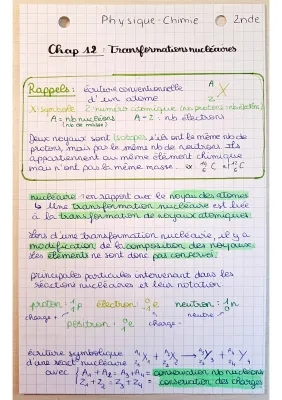 Physique-Chimie 2nde
Chap 12 : Transformations nucléaires
Rappels : écriture conventionnelle A X
d'un atome Z
X : symbole Z : numéro atomique (nb protons, nb électrons)
A = nb nucléons A - Z : nb électrons
(nb de masse)
Deux noyaux sont isotopes s'ils ont le même nb de
protons, mais pas le même nb de neutrons. Ils
appartiennent au même élément chimique
mais n'ont pas la même masse. ex
nucléaire : en rapport avec le noyau des atomes
↳ Une transformation nucléaire est liée
à la transformation de noyaux atomiques
Lors d'une transformation nucléaire, il y a
modification de la composition des noyaux.
Les éléments ne sont donc pas conservés.
principales particules intervenant dans les
réactions nucléaires et leur notation
proton : 1 1 p électron : 0 -1 e neutron : 1 0 n
charge + neutre
positron : 0 1 e charge -
écriture symbolique A1 Z1 X1 + A2 Z2 X2 → A3 Z3 Y3 + A4 Z4 Y4
d'une réact nucléaire
avec { A1 + A2 = A3 + A4 = conservation nb nucléons
Z1 + Z2 = Z3 + Z4 = conservation des charges